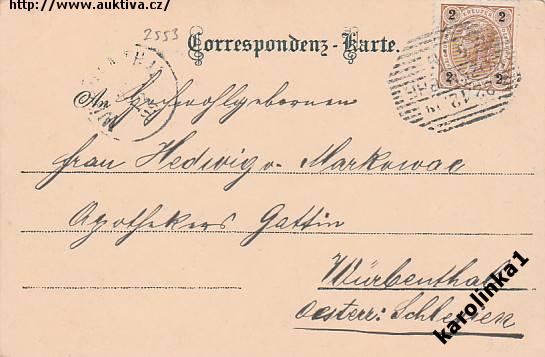 http://www.auktiva.cz/
2553
Correspondenz-Karte.
2 2
KREUZER
2 2
An Hochwohlgebornen
Frau Hedwig v. Markowac
Apothekers Gattin
Würbenthal
Oesterr: Schlesien
karolinka1